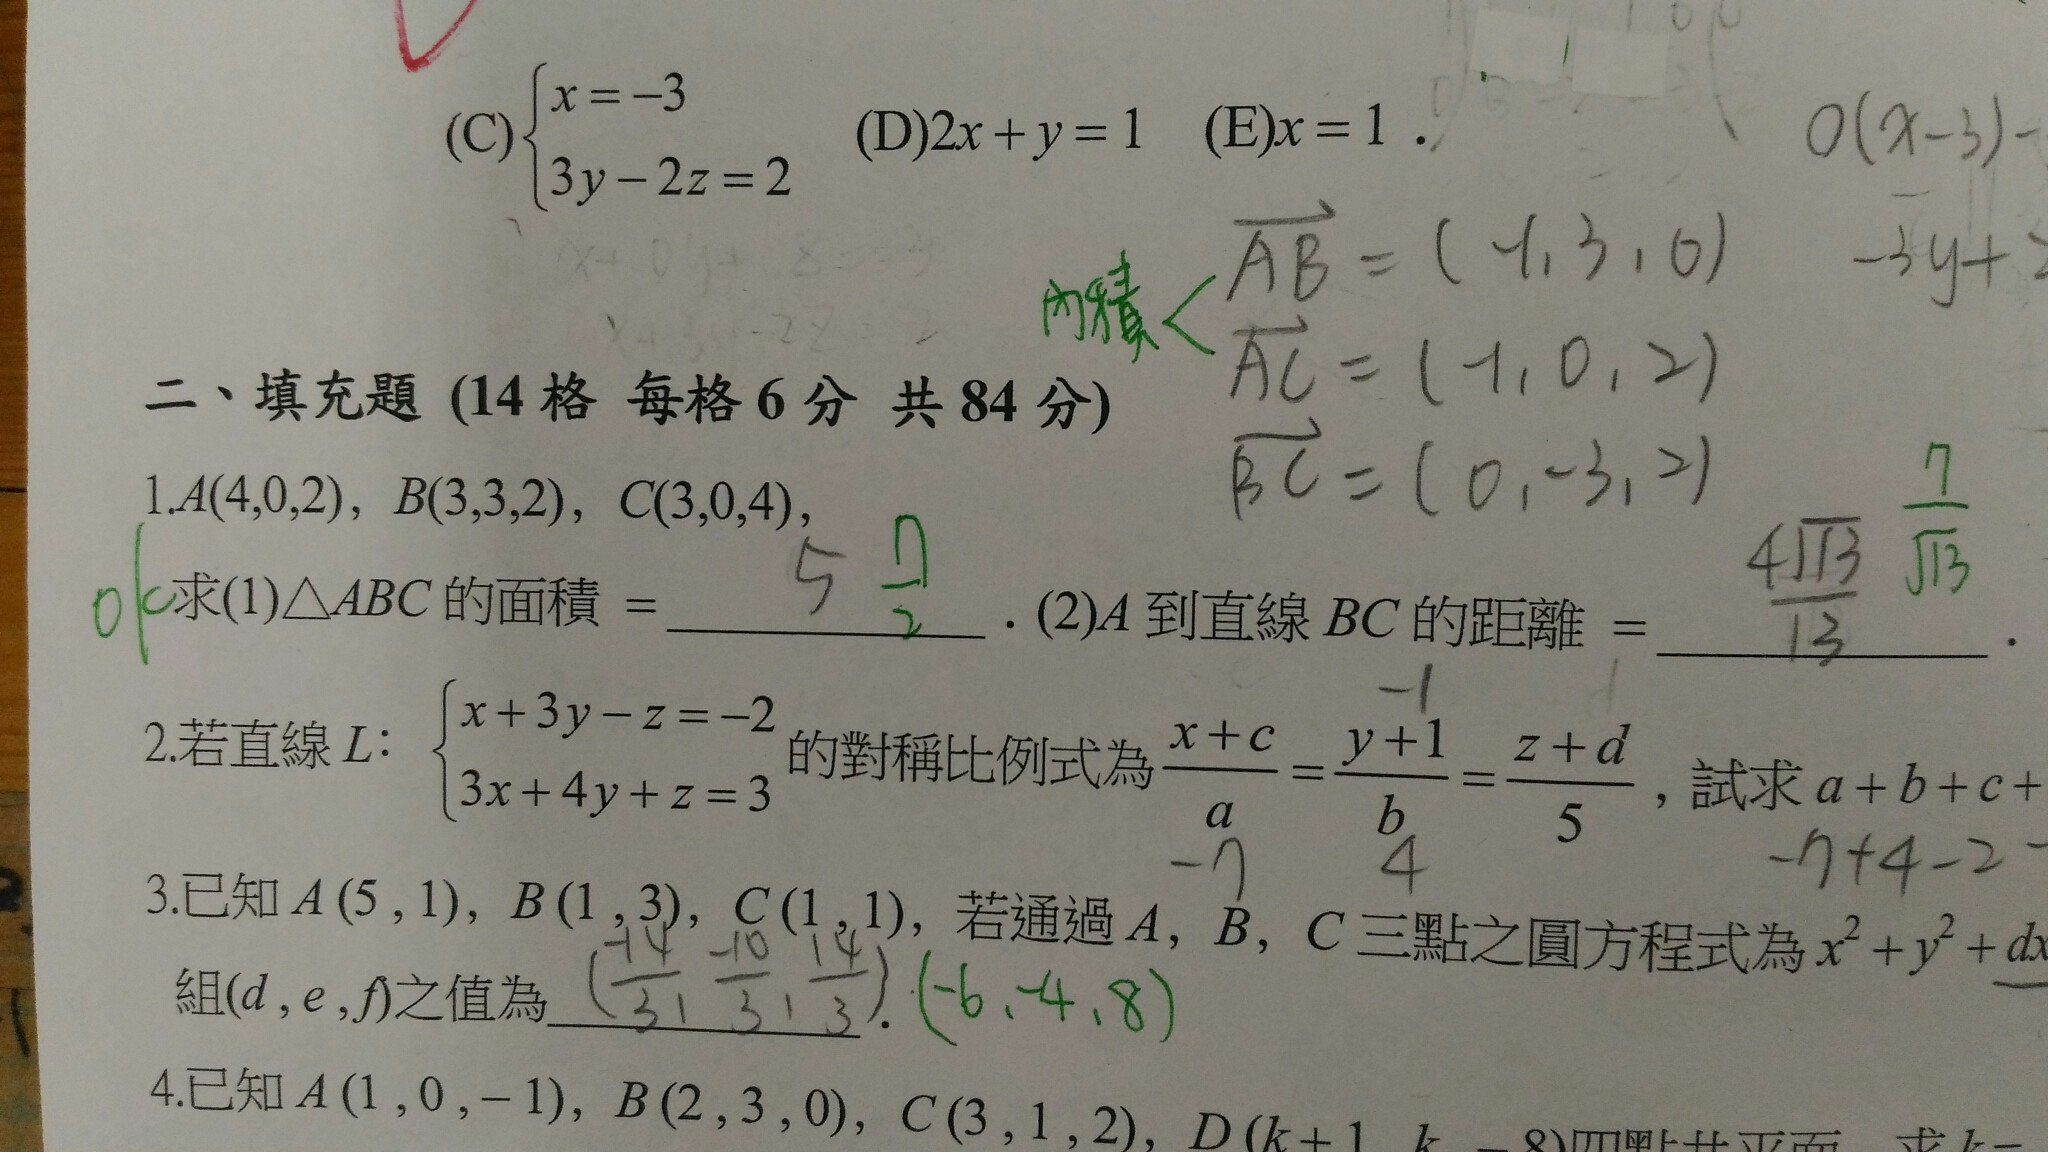 (C) { x = −3
3y − 2z = 2
(D)2x + y = 1 (E)x = 1 .
0(x−3)−
−3y+2
內積 <
AB = (−1, 3, 0)
AC = (−1, 0, 2)
BC = (0, −3, 2)
二、填充題 (14 格 每格 6 分 共 84 分)
1.A(4,0,2), B(3,3,2), C(3,0,4),
ok 求(1)△ABC 的面積 = 5 7/2 . (2)A 到直線 BC 的距離 = 4√13/13 7/√13 .
2.若直線 L: { x + 3y − z = −2
3x + 4y + z = 3
的對稱比例式為 (x + c)/a = (y + 1)/b = (z + d)/5 , 試求 a + b + c +
−1
−7 4 −7+4−2−
3.已知 A (5 , 1), B (1 , 3), C (1 , 1), 若通過 A, B, C 三點之圓方程式為 x² + y² + dx
組(d , e , f)之值為 (−14/3, −10/3, 14/3) . (−6, −4, 8)
4.已知 A (1 , 0 , − 1), B (2 , 3 , 0), C (3 , 1 , 2), D (k + 1, k, − 8)四點共平面, 求 k =